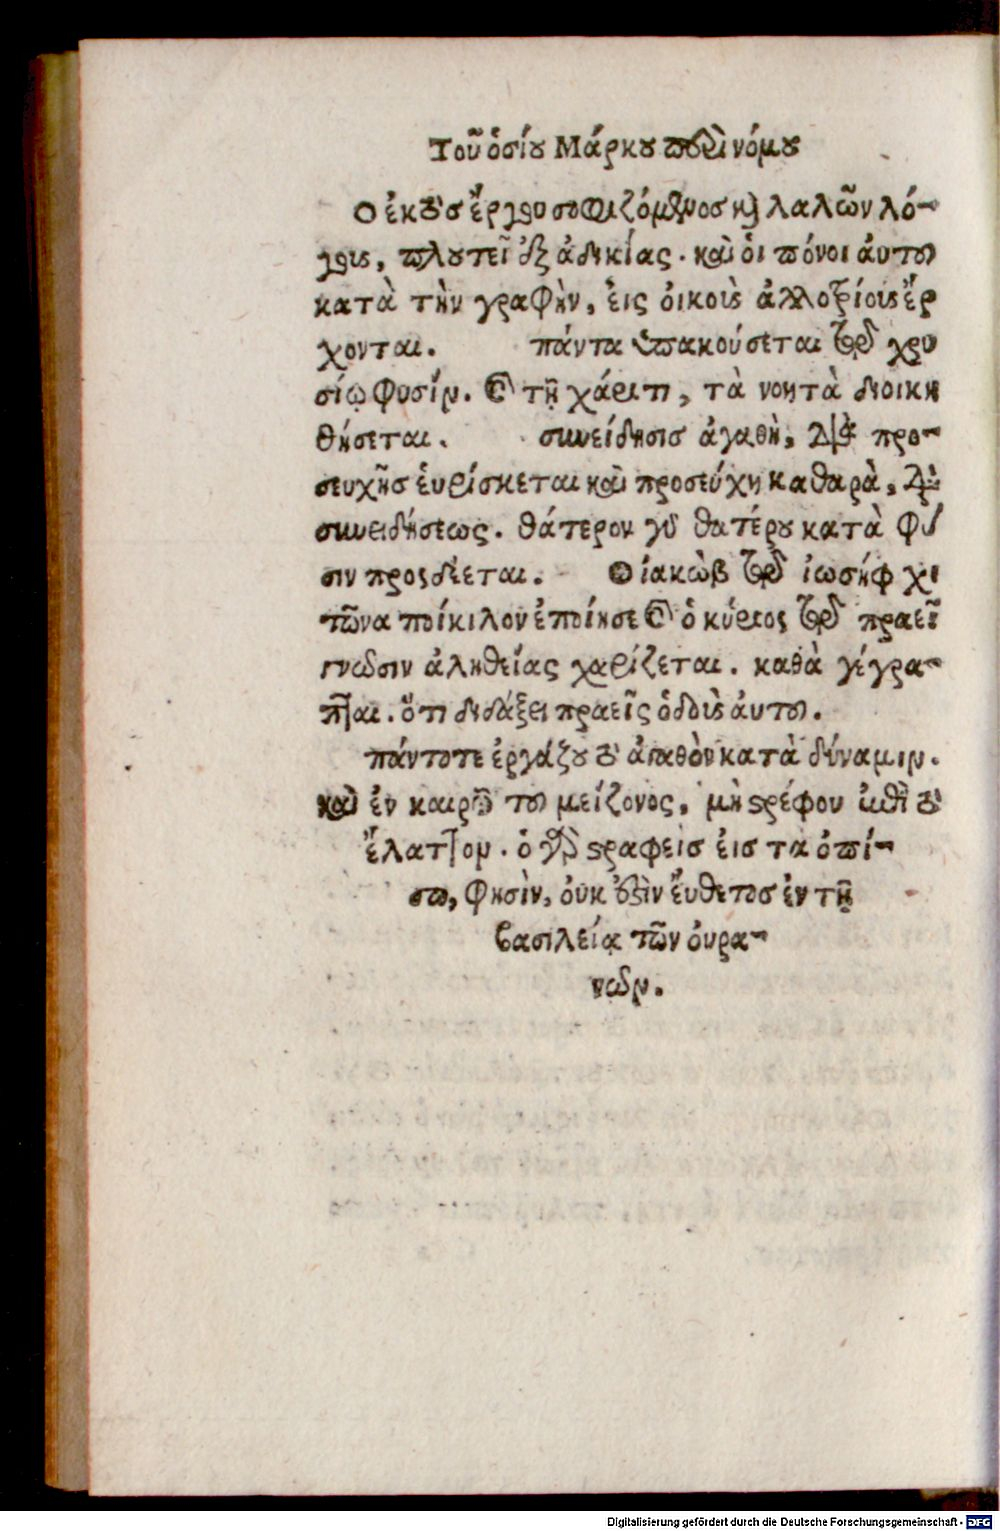 Τοῦ ὁσίου Μάρκου περὶ νόμου
Ο ἐκτὸς ἔργου σοφιζόμενοσ καὶ λαλῶν λό-
γους, πλουτεῖ ἐξ ἀδικίας. καὶ ὁι πόνοι ἀυτοῦ
κατὰ τὴν γραφὴν, ἐις ὀικοὺς ἀλλοτρίους ἔρ
χονται. πάντα ὑπακούσεται τῷ χρυ
σίῳ φυσίν. καὶ τῇ χάριτι, τὰ νοητὰ διοικη
θήσεται. συνείδησισ ἀγαθὴ, διὰ προ-
σευχῆσ ἑυρίσκεται καὶ προσεύχη καθαρὰ, διὰ
συνειδήσεως. θάτερον γὰρ θατέρου κατὰ φύ
σιν προςδέεται. Ο ἰακὼβ τῷ ἰωσήφ χι
τῶνα ποίκιλον ἐποίησε καὶ ὁ κύριος τῷ πραεῖ
γνῶσιν ἀληθείας χαρίζεται. καθὰ γέγρα-
πται. ὅτι διδάξει πραεῖς ὁδοὺς ἀυτοῦ.
πάντοτε ἐργάζου τὸ ἀγαθὸν κατὰ δύναμιν.
καὶ ἐν καιρῷ τοῦ μείζονος, μὴ στρέφου ἐπὶ τὸ
ἔλαττον. ὁ γὰρ στραφεὶσ ἐισ τὰ ὀπί-
σω, φησὶν, ὀυκ ἐστὶν ἔυθετοσ ἐν τῇ
βασιλείᾳ τῶν ὀυρα-
νῶν.
Digitalisierung gefördert durch die Deutsche Forschungsgemeinschaft - DFG